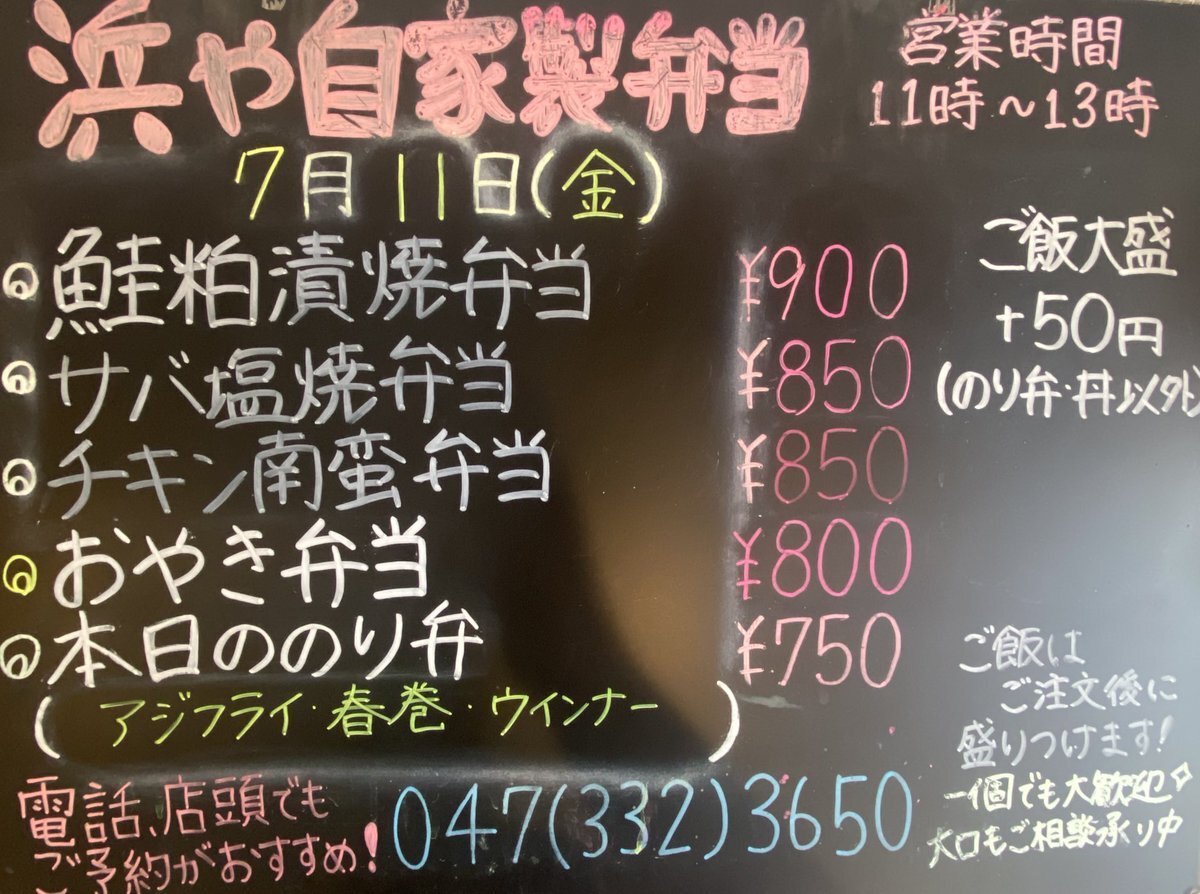 浜や自家製弁当
営業時間
11時～13時
7月11日(金)
◎鮭粕漬焼弁当 ¥900
◎サバ塩焼弁当 ¥850
◎チキン南蛮弁当 ¥850
◎おやき弁当 ¥800
◎本日ののり弁 ¥750
(アジフライ・春巻・ウインナー)
ご飯大盛
+50円
(のり弁・丼以外)
ご飯は
ご注文後に
盛りつけます!
一個でも大歓迎
大口もご相談承り中
電話、店頭でも
ご予約がおすすめ!
047(332)3650